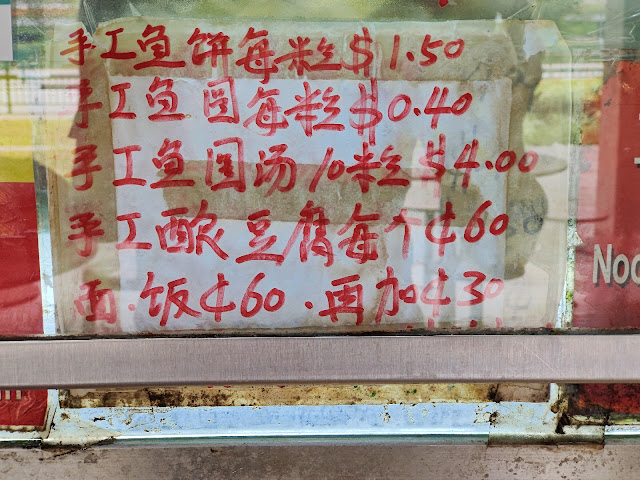 手工鱼饼每粒$1.50
手工鱼圆每粒$0.40
手工鱼圆汤10粒$4.00
手工酿豆腐每个¢60
面.饭¢60.再加¢30
Noo